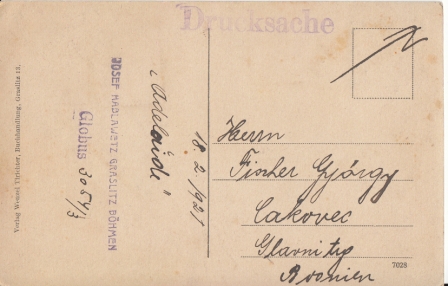 Drucksache
Verlag Wenzl Türichter, Buchhandlung, Graslitz 12.
JOSEF HADLAWETZ GRASLITZ BÖHMEN
Globus 3054/3
„Adelaide"
18 2/921
Herrn
Fischer György
Cakovec
Glavni trg
7028